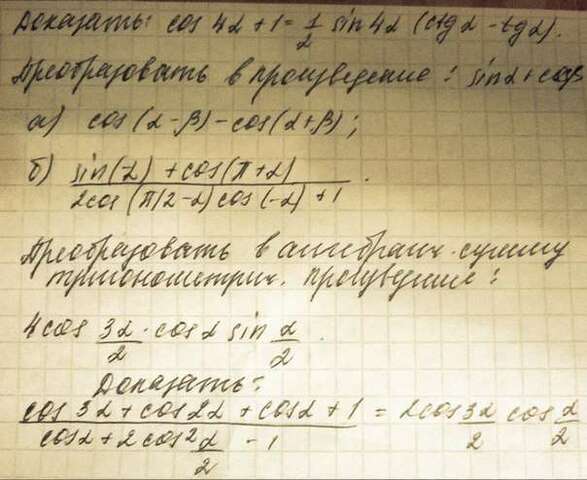 Доказать: cos 4α + 1 = 1/2 sin 4α (ctgα - tgα).
Преобразовать в произведение: sinα + cosβ
а) cos(α-β) - cos(α+β);
б) (sin(α) + cos(π+α))/(2cos(π/2-α)cos(-α) + 1).
Преобразовать в алгебраич. сумму
тригонометрич. произведения:
4cos 3α/2 · cosα sin α/2.
Доказать:
(cos 3α + cos2α + cosα + 1)/(cosα + 2cos² α/2 - 1) = 2cos 3α/2 cos α/2